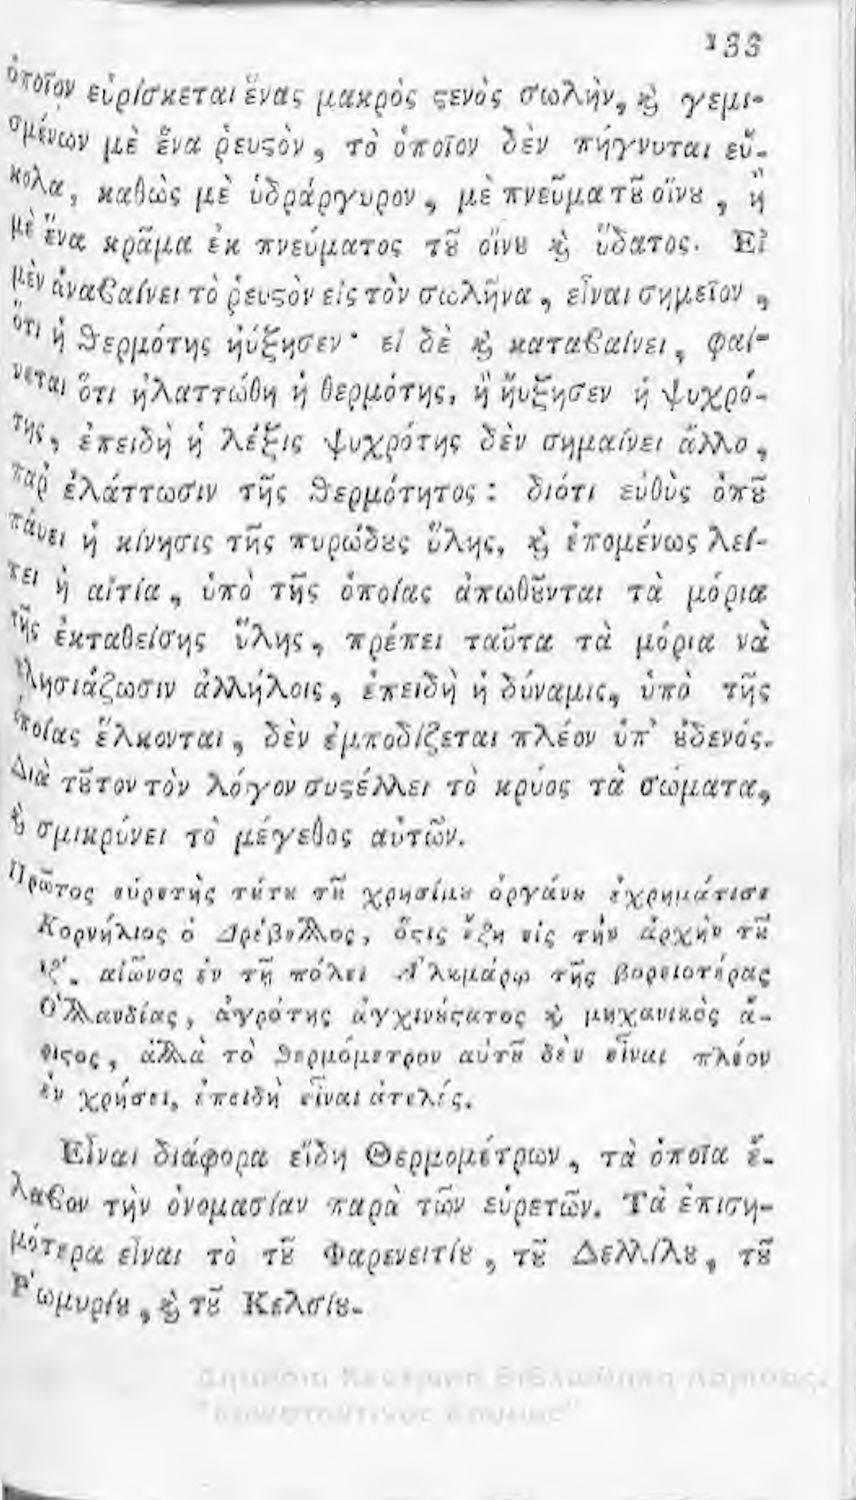 133
ὁποῖον εὑρίσκεται ἕνας μακρὸς ϛενὸς σωλὴν, ϗ γεμι-
σμένων μὲ ἕνα ῥευϛὸν, τὸ ὁποῖον δὲν πήγνυται εὔ-
κολα, καθὼς μὲ ὑδράργυρον, μὲ πνεῦμα τȣ͂ οἴνȣ, ἢ
μὲ ἕνα κρᾶμα ἐκ πνεύματος τȣ͂ οἴνȣ ϗ ὕδατος. Εἰ
μὲν ἀναβαίνει τὸ ῥευϛὸν εἰς τὸν σωλῆνα, εἶναι σημεῖον,
ὅτι ἡ θερμότης ηὔξησεν· εἰ δὲ ϗ καταβαίνει, φαί-
νεται ὅτι ἠλαττώθη ἡ θερμότης, ἢ ἤυξησεν ἡ ψυχρό-
της, ἐπειδὴ ἡ λέξις ψυχρότης δὲν σημαίνει ἄλλο,
παρ ἐλάττωσιν τῆς θερμότητος: διότι εὐθὺς ὁπȣ͂
πάυει ἡ κίνησις τῆς πυρώδȣς ὕλης, ϗ ἑπομένως λεί-
πει ἡ αἰτία, ὑπὸ τῆς ὁποίας ἀπωθȣ͂νται τὰ μόρια
τῆς ἐκταθείσης ὕλης, πρέπει ταῦτα τὰ μόρια νὰ
πλησιάζωσιν ἀλλήλοις, ἐπειδὴ ἡ δύναμις, ὑπὸ τῆς
ὁποίας ἕλκονται, δὲν ἐμποδίζεται πλέον ὑπ' ȣδενός.
Διὰ τȣ͂τον τὸν λόγον συϛέλλει τὸ κρύος τὰ σώματα,
ϗ σμικρύνει τὸ μέγεθος αὐτῶν.
Πρῶτος εὑρετὴς τȣ́τȣ τȣ͂ χρησίμȣ ὀργάνȣ ἐχρημάτισε
Κορνήλιος ὁ Δρέβελλος, ὅϛις ἔζη εἰς τὴν ἀρχὴν τȣ͂
ιζ΄. αἰῶνος ἐν τῇ πόλει Ἀλκμάρῳ τῆς βορειοτέρας
Ὀλλανδίας, ἀγρότης ἀγχινȣ́ϛατος ϗ μηχανικὸς ἄ-
ριϛος, ἀλλὰ τὸ θερμόμετρον αὐτȣ͂ δὲν εἶναι πλέον
ἐν χρήσει, ἐπειδὴ εἶναι ἀτελές.
Εἶναι διάφορα εἴδη Θερμομέτρων, τὰ ὁποῖα ἔ-
λαβον τὴν ὀνομασίαν παρὰ τῶν εὑρετῶν. Τὰ ἐπιση-
μότερα εἶναι τὸ τȣ͂ Φαρενειτίȣ, τȣ͂ Δελλίλȣ, τȣ͂
Ῥωμυρίȣ, ϗ τȣ͂ Κελσίȣ.
Δημόσια Κεντρική Βιβλιοθήκη Λάρισας,
"Κωνσταντίνος Κούμας"